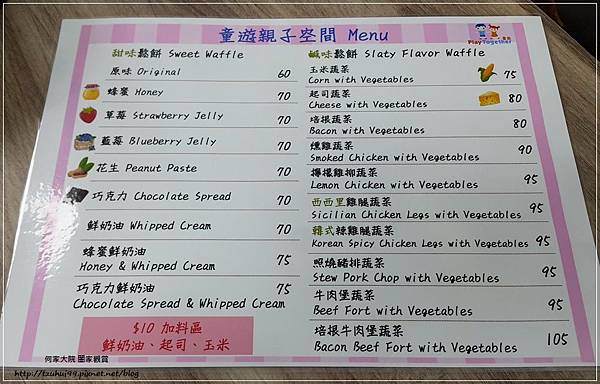 童遊親子空間 Menu
Play Together
甜味鬆餅 Sweet Waffle
原味 Original 60
蜂蜜 Honey 70
草莓 Strawberry Jelly 70
藍莓 Blueberry Jelly 70
花生 Peanut Paste 70
巧克力 Chocolate Spread 70
鮮奶油 Whipped Cream 70
蜂蜜鮮奶油 75
Honey & Whipped Cream
巧克力鮮奶油 75
Chocolate Spread & Whipped Cream
$10 加料區
鮮奶油、起司、玉米
鹹味鬆餅 Slaty Flavor Waffle
玉米蔬菜 75
Corn with Vegetables
起司蔬菜 80
Cheese with Vegetables
培根蔬菜 80
Bacon with Vegetables
燻雞蔬菜 90
Smoked Chicken with Vegetables
檸檬雞柳蔬菜 95
Lemon Chicken with Vegetables
西西里雞腿蔬菜 95
Sicilian Chicken Legs with Vegetables
韓式辣雞腿蔬菜 95
Korean Spicy Chicken Legs with Vegetables
照燒豬排蔬菜 95
Stew Pork Chop with Vegetables
牛肉堡蔬菜 95
Beef Fort with Vegetables
培根牛肉堡蔬菜 105
Bacon Beef Fort with Vegetables
何家大院 闔家觀賞
http://tzuhui99.pixnet.net/blog